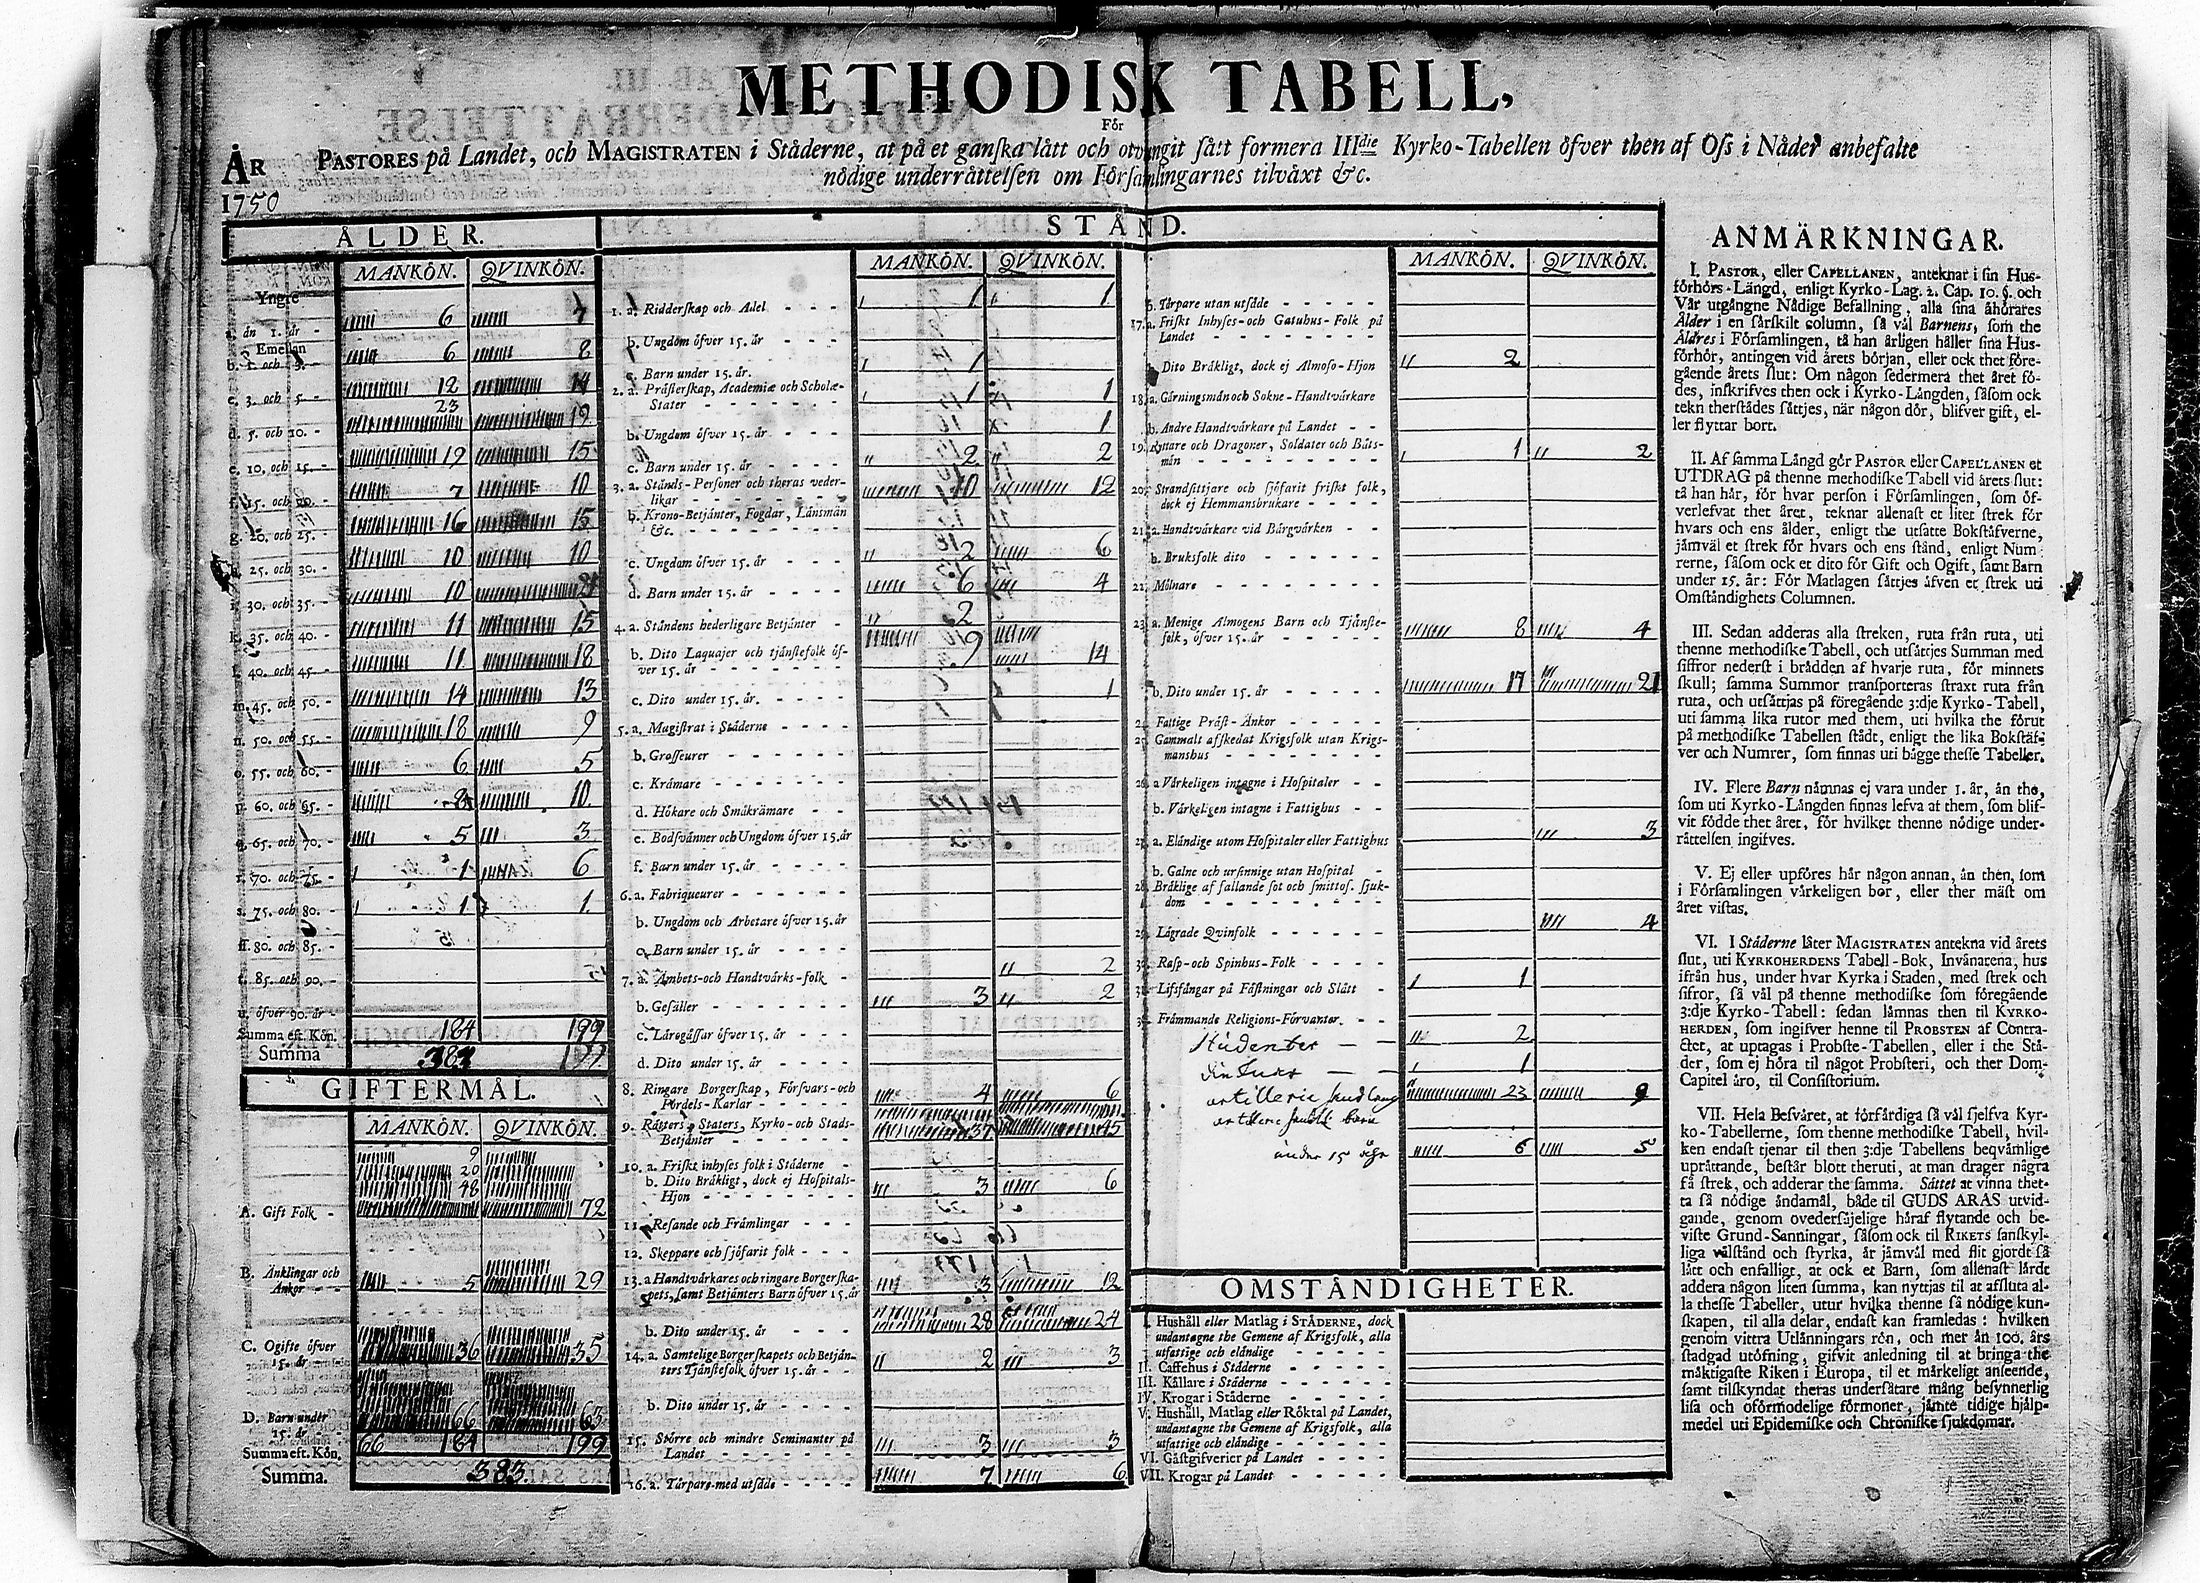 METHODISK TABELL,
För
PASTORES på Landet, och MAGISTRATEN i Städerne, at på et ganska lätt och otvungit sätt formera IIIdie Kyrko-Tabellen öfver then af Oss i Nåder anbefalte
nödige underrättelsen om Församlingarnes tilväxt &c.
ÅR
1750
ÅLDER.
MANKÖN. QVINKÖN.
Yngre
än 1. år - 6 7
Emellan
b. 1. och 3. - 6 8
c. 3. och 5. - 12 14
d. 5. och 10. - 23 19
e. 10. och 15. - 19 15
f. 15. och 20. - 7 10
g. 20. och 25. - 16 15
25. och 30. - 10 10
30. och 35. - 10 21
k. 35. och 40. - 11 15
l. 40. och 45. - 11 18
m. 45. och 50. - 14 13
n. 50. och 55. - 18 9
o. 55. och 60. - 6 5
p. 60. och 65. - 8 10
q. 65. och 70. - 5 3
r. 70. och 75. - 1 6
s. 75. och 80. - 1 1
ff. 80. och 85. -
t. 85. och 90. -
u. öfver 90. år -
Summa eft. Kön. 184 199
Summa 383 199
GIFTERMÅL.
MANKÖN. QVINKÖN.
9
20
48
A. Gift Folk - 72
B. Änklingar och
Änkor - - 5 29
C. Ogifte öfver
15. år - - 36 35
D. Barn under
15. år - - 66 63
Summa eft. Kön. 66 184 199
Summa. 383.
STÅND.
MANKÖN. QVINKÖN.
1. a. Ridderskap och Adel - - - - 1 1
b. Ungdom öfver 15. år - - - -
c. Barn under 15. år. 1
2. a. Prästerskap, Academiæ och Scholæ-
Stater - - - - - - 1 1
b. Ungdom öfver 15. år - - - - 1
c. Barn under 15. år - - - - 2 2
3. a. Stånds-Personer och theras veder-
likar - - - - - - - 10 12
b. Krono-Betjänter, Fogdar, Länsmän
&c. - - - - - - -
c. Ungdom öfver 15. år - - - - 2 6
d. Barn under 15. år - - - - 6 4
4. a. Ståndens hederligare Betjänter - 2
b. Dito Laquajer och tjänstefolk öf-
ver 15. år - - - - - - 9 14
c. Dito under 15. år. - - - - 1
5. a. Magistrat i Städerne - - - -
b. Grosseurer - - - - - -
c. Krämare - - - - - -
d. Hökare och Småkrämare - -
e. Bodsvänner och Ungdom öfver 15. år
f. Barn under 15. år - - - -
6. a. Fabriqueurer - - - - -
b. Ungdom och Arbetare öfver 15. år
c. Barn under 15. år - - - -
7. a. Ämbets-och Handtvärks-folk - 2
b. Gesäller - - - - - - 3 2
c. Lärogåssar öfver 15. år - - -
d. Dito under 15. år - - - -
8. Ringare Borgerskap, Försvars-och
Fördels-Karlar - - - - - 4 6
9. Rätters, Staters, Kyrko- och Stads-
Betjänter - - - - - - 37 45
10. a. Friskt inhyses folk i Städerne -
b. Dito Bräkligt, dock ej Hospitals-
Hjon - - - - - - - 3 6
11. Resande och Främlingar - - -
12. Skeppare och sjöfarit folk - - -
13. a Handtvärkares och ringare Borgerska-
pets, samt Betjänters Barn öfver 15. år 3 12
b. Dito under 15. år - - - 28 24
14. a. Samtelige Borgerskapets och Betjän-
ters Tjänstefolk öfver 15. år - - 2 3
b. Dito under 15. år - - - -
15. Större och mindre Seminanter på
Landet - - - - - - - 3 3
16. a. Tärpare med utsäde - - - - 7 6
MANKÖN. QVINKÖN.
b. Tärpare utan utsäde - - - - -
17. a. Friskt Inhyses-och Gatuhus-Folk på
Landet - - - - - - -
Dito Bräkligt, dock ej Almoso-Hjon 2
18. a. Gärningsmän och Sokne-Handtvärkare
b. Andre Handtvärkare på Landet - -
19. Ryttare och Dragoner, Soldater och Båts-
män - - - - - - - 1 2
20. Strandsittjare och sjöfarit friskt folk,
dock ej Hemmansbrukare - - - -
21. a. Handtvärkare vid Bärgvärken - -
b. Bruksfolk dito - - - - - -
22. Mölnare - - - - - - - -
23. a. Menige Almogens Barn och Tjänste-
folk, öfver 15. år - - - - - 8 4
b. Dito under 15. år - - - - - 17 21
Fattige Präst-Änkor - - - - -
Gammalt afskedat Krigsfolk utan Krigs-
manshus - - - - - - - -
26. a Värkeligen intagne i Hospitaler - -
b. Värkeligen intagne i Fattighus - -
27. a. Eländige utom Hospitaler eller Fattighus 3
b. Galne och ursinnige utan Hospital -
28. Bräklige af fallande sot och smittos. sjuk-
dom - - - - - - - -
Lägrade Qvinfolk - - - - - 4
Rasp-och Spinhus-Folk - - - -
Lifsfångar på Fästningar och Slått - 1
Främmande Religions-Förvanter. - -
Studenter — — 2
— — 1
artillerie 23 9
barn
under 15 åhr 6 5
OMSTÄNDIGHETER.
I. Hushåll eller Matlag i STÄDERNE, dock
undantagne the Gemene af Krigsfolk, alla
utfattige och eländige - - - - -
II. Caffehus i Städerne - - - - -
III. Källare i Städerne - - - - - -
IV. Krogar i Städerne - - - - - -
V. Hushåll, Matlag eller Röktal på Landet,
undantagne the Gemene af Krigsfolk, alla
utfattige och eländige - - - - - -
VI. Gästgifverier på Landet - - - - -
VII. Krogar på Landet - - - - -
ANMÄRKNINGAR.
I. PASTOR, eller CAPELLANEN, anteknar i sin Hus-
förhörs-Längd, enligt Kyrko-Lag. 2. Cap. 10. §. och
Vår utgångne Nådige Befallning, alla sina åhörares
Ålder i en särskilt column, så väl Barnens, som the
Äldres i Församlingen, tå han årligen håller sina Hus-
förhör, antingen vid årets början, eller ock thet före-
gående årets slut: Om någon sedermera thet året fö-
des, inskrifves then ock i Kyrko-Längden, såsom ock
tekn therstädes sättjes, när någon dör, blifver gift, el-
ler flyttar bort.
II. Af samma Längd gör PASTOR eller CAPELLANEN et
UTDRAG på thenne methodiske Tabell vid årets slut:
tå han här, för hvar person i Församlingen, som öf-
verlefvat thet året, teknar allenast et litet strek för
hvars och ens ålder, enligt the utsatte Bokstäfverne,
jämväl et strek för hvars och ens stånd, enligt Num-
rerne, såsom ock et dito för Gift och Ogift, samt Barn
under 15. år: För Matlagen sättjes äfven et strek uti
Omständighets Columnen.
III. Sedan adderas alla streken, ruta från ruta, uti
thenne methodiske Tabell, och utsättjes Summan med
siffror nederst i brädden af hvarje ruta, för minnets
skull; samma Summor transporteras straxt ruta från
ruta, och utsättjas på föregående 3:dje Kyrko-Tabell,
uti samma lika rutor med them, uti hvilka the förut
på methodiske Tabellen städt, enligt the lika Bokstäf-
ver och Numrer, som finnas uti bägge thesse Tabeller.
IV. Flere Barn nämnas ej vara under 1. år, än the,
som uti Kyrko-Längden finnas lefva af them, som blif-
vit födde thet året, för hvilket thenne nödige under-
rättelsen ingifves.
V. Ej eller upföres här någon annan, än then, som
i Församlingen värkeligen bor, eller ther mäst om
året vistas.
VI. I Städerne låter MAGISTRATEN antekna vid årets
slut, uti KYRKOHERDENS Tabell-Bok, Invånarena, hus
ifrån hus, under hvar Kyrka i Staden, med strek och
sifror, så väl på thenne methodiske som föregående
3:dje Kyrko-Tabell: sedan lämnas then til KYRKO-
HERDEN, som ingifver henne til PROBSTEN af Contra-
ctet, at uptagas i Probste-Tabellen, eller i the Stä-
der, som ej höra til något Probsteri, och ther Dom-
Capitel äro, til Consistorium.
VII. Hela Besväret, at förfärdiga så väl sjelfva Kyr-
ko-Tabellerne, som thenne methodiske Tabell, hvil-
ken endast tjenar til then 3:dje Tabellens beqvämlige
uprättande, består blott theruti, at man drager några
få strek, och adderar the samma. Sättet at vinna thet-
ta så nödige ändamål, både til GUDS ÄRAS utvid-
gande, genom ovedersäjelige häraf flytande och be-
viste Grund-Sanningar, såsom ock til RIKETS sanskyl-
liga välstånd och styrka, är jämväl med flit gjordt så
lätt och enfalligt, at ock et Barn, som allenast lärdt
addera någon liten summa, kan nyttjas til at afsluta al-
la thesse Tabeller, utur hvilka thenne så nödige kun-
skapen, til alla delar, endast kan framledas: hvilken
genom vittra Utlänningars rön, och mer än 100. års
stadgad utöfning, gifvit anledning til at bringa the
mäktigaste Riken i Europa, til et märkeligt anseende,
samt tilskyndat theras undersåtare mång besynnerlig
lisa och oförmodelige förmoner, jämte tidige hjälp-
medel uti Epidemiske och Chroniske sjukdomar.